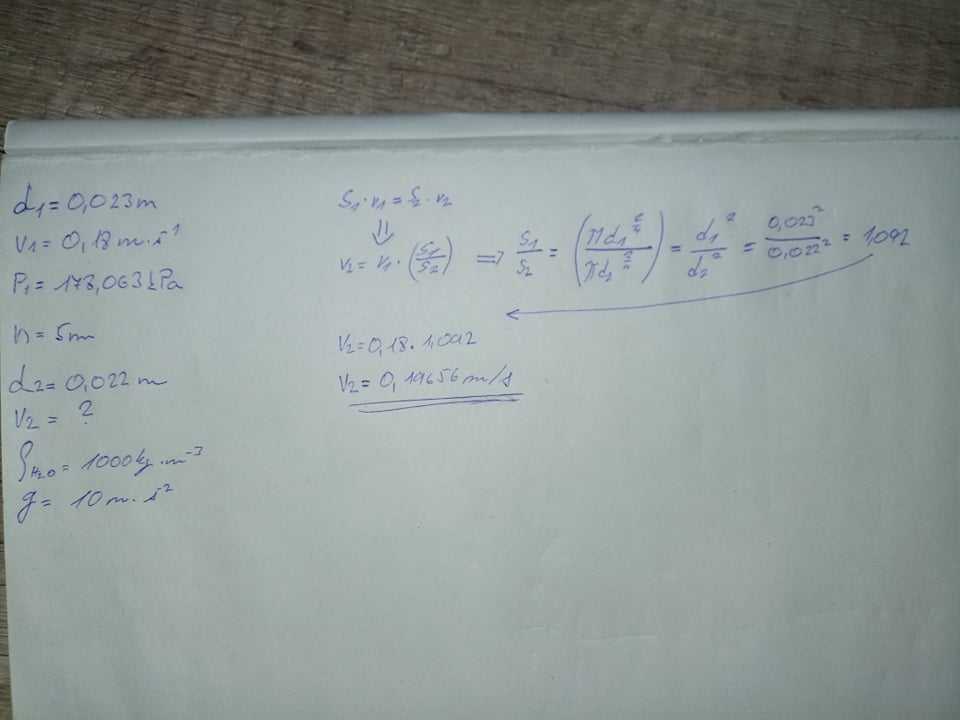 d₁ = 0,023m
v₁ = 0,18 m·s⁻¹
P₁ = 178,063 kPa
h = 5m
d₂ = 0,022 m
v₂ = ?
ρH₂O = 1000 kg·m⁻³
g = 10 m·s⁻²
S₁·v₁ = S₂·v₂
⇓
v₂ = v₁·(S₁/S₂) => S₁/S₂ = (πd₁²/⁴ / πd₂²/⁴) = d₁²/d₂² = 0,023²/0,022² = 1,092
v₂ = 0,18·1,092
v₂ = 0,19656 m/s